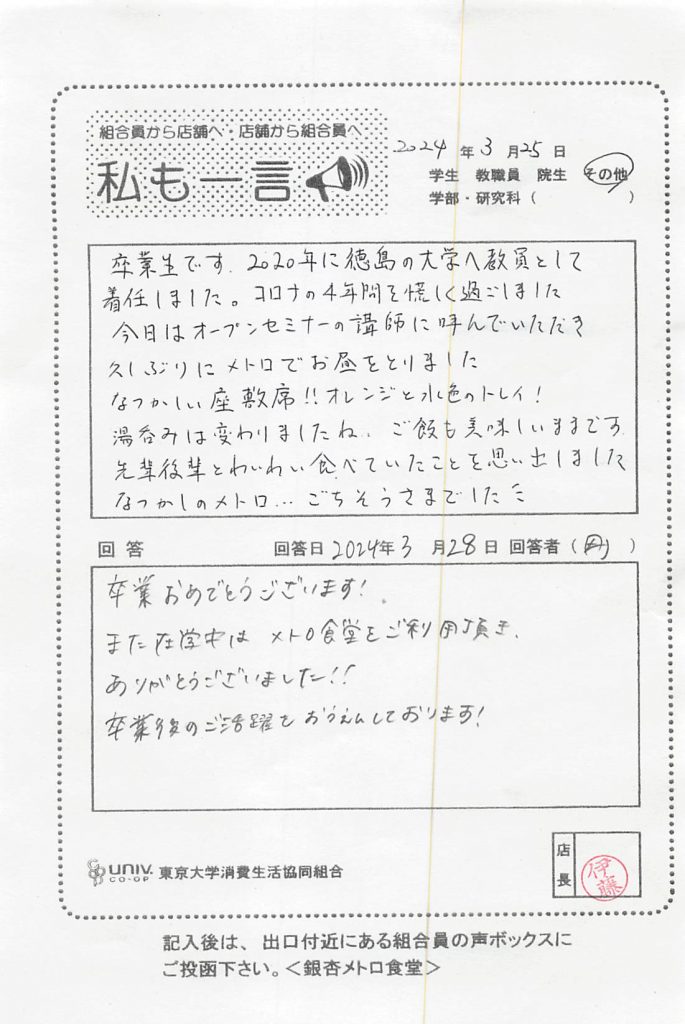 組合員から店舗へ・店舗から組合員へ
私も一言
2024年3月25日
学生 教職員 院生 その他
学部・研究科( )
卒業生です. 2020年に徳島の大学へ教員として
着任しました。コロナの4年間を慌しく過ごしました
今日はオープンセミナーの講師に呼んでいただき
久しぶりにメトロでお昼をとりました
なつかしい座敷席!!オレンジと水色のトレイ!
湯呑みは変わりましたね.. ご飯も美味しいままです.
先輩後輩とわいわい食べていたことを思い出しました
なつかしのメトロ... ごちそうさまでした
回答 回答日2024年3月28日 回答者( )
卒業おめでとうございます!
また在学中は メトロ食堂をご利用頂き、
ありがとうございました!!
卒業後のご活躍をおうえんしております!
UNIV. CO-OP 東京大学消費生活協同組合
店長 伊藤
記入後は、出口付近にある組合員の声ボックスに
ご投函下さい。<銀杏メトロ食堂>